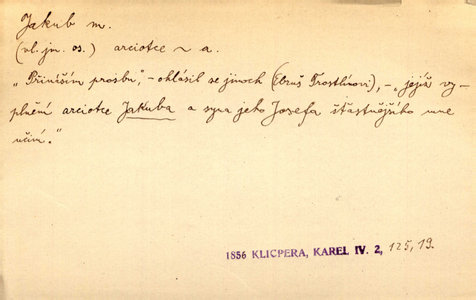 Jakub m.
(vl. jm. os.) arciotce ~ a.
„Přináším prosbu," - ohlásil se jinoch (Ebruš Trostlínovi), - „jejíž vy-
plnění arciotce Jakuba a syna jeho Josefa šťastnějšího mne
učiní."
1856 KLICPERA, KAREL IV. 2, 125, 19.